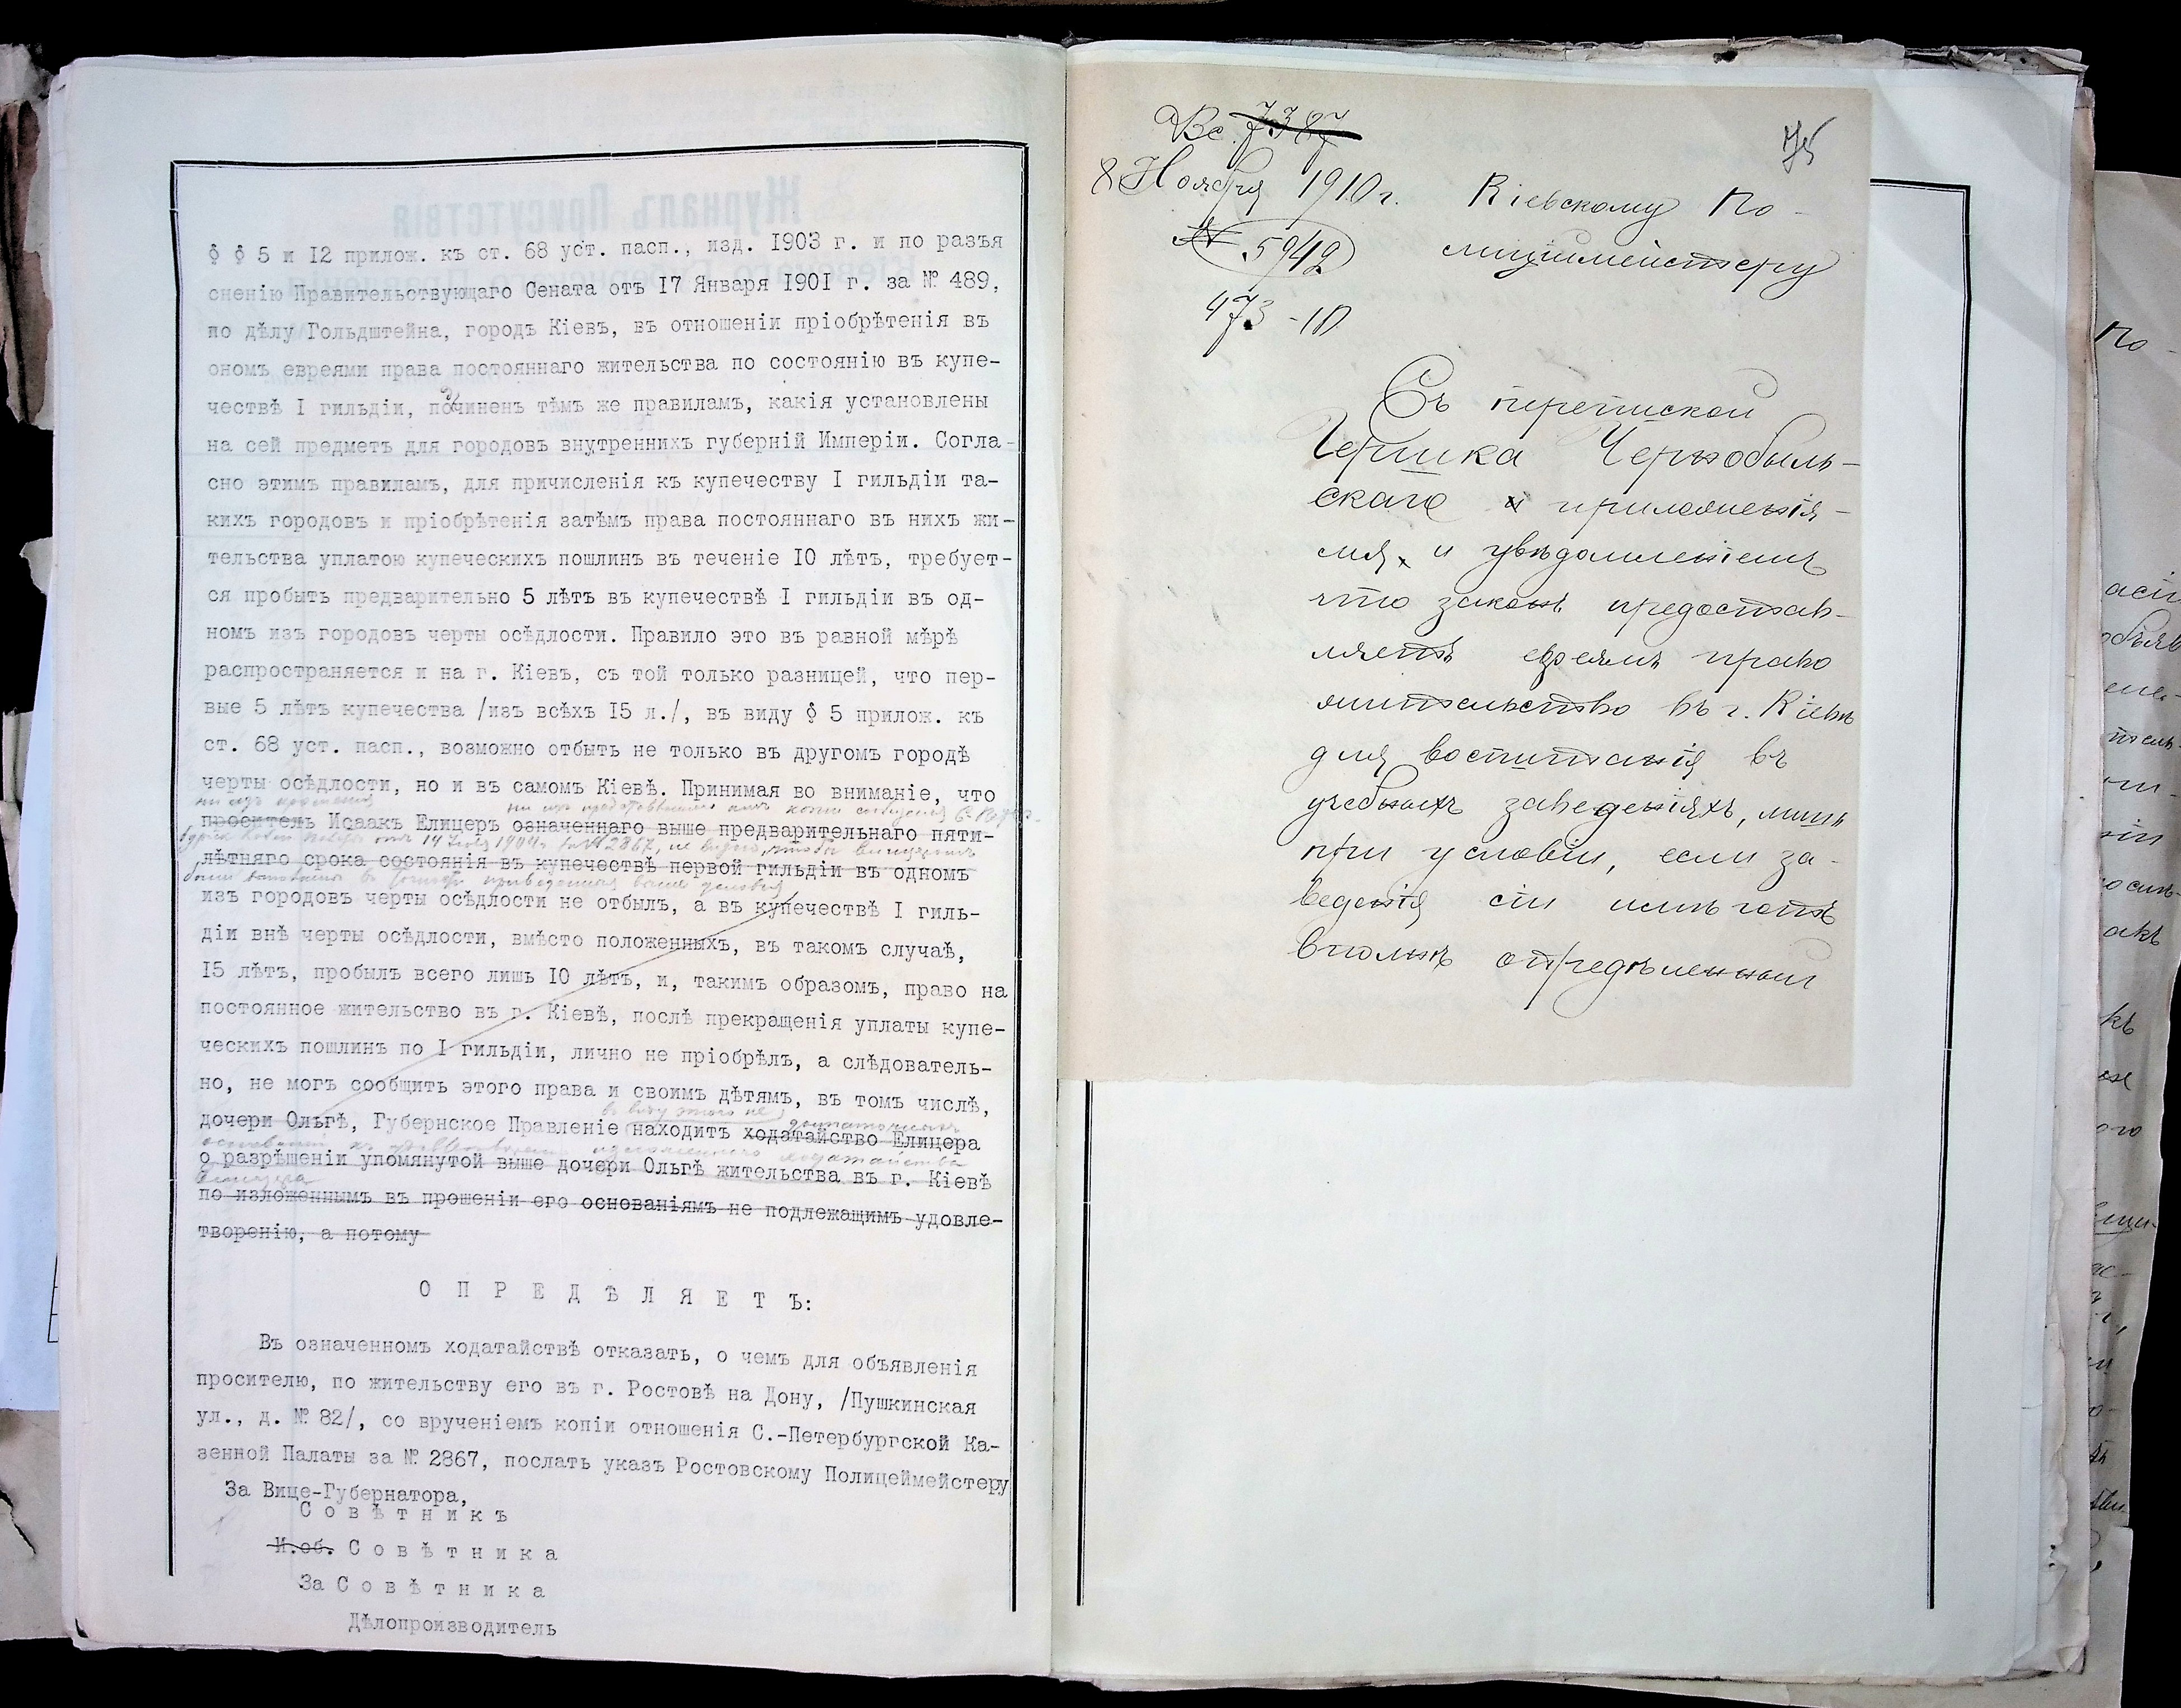 § § 5 и 12 прилож. къ ст. 68 уст. пасп., изд. 1903 г. и по разъя
сненію Правительствующаго Сената отъ 17 Января 1901 г. за № 489,
по дѣлу Гольдштейна, городъ Кіевъ, въ отношеніи пріобрѣтенія въ
ономъ евреями права постояннаго жительства по состоянію въ купе-
чествѣ I гильдіи, подчиненъ тѣмъ же правиламъ, какія установлены
на сей предметъ для городовъ внутреннихъ губерній Имперіи. Согла-
сно этимъ правиламъ, для причисленія къ купечеству I гильдіи та-
кихъ городовъ и пріобрѣтенія затѣмъ права постояннаго въ нихъ жи-
тельства уплатою купеческихъ пошлинъ въ теченіе 10 лѣтъ, требует-
ся пробыть предварительно 5 лѣтъ въ купечествѣ I гильдіи въ од-
номъ изъ городовъ черты осѣдлости. Правило это въ равной мѣрѣ
распространяется и на г. Кіевъ, съ той только разницей, что пер-
вые 5 лѣтъ купечества /изъ всѣхъ 15 л./, въ виду § 5 прилож. къ
ст. 68 уст. пасп., возможно отбыть не только въ другомъ городѣ
черты осѣдлости, но и въ самомъ Кіевѣ. Принимая во вниманіе, что
ни изъ прошенія ни изъ представленной имъ копіи сообщенія С.-Петер-
проситель Исаакъ Елицеръ означеннаго выше предварительнаго пяти-
бургск. Казен. Палаты отъ 14 1904 г. за № 2867, не видно, чтобы Елицеромъ
лѣтняго срока состоянія въ купечествѣ первой гильдіи въ одномъ
были выполнены въ приведенныя выше условія
изъ городовъ черты осѣдлости не отбылъ, а въ купечествѣ I гиль-
діи внѣ черты осѣдлости, вмѣсто положенныхъ, въ такомъ случаѣ,
15 лѣтъ, пробылъ всего лишь 10 лѣтъ, и, такимъ образомъ, право на
постоянное жительство въ г. Кіевѣ, послѣ прекращенія уплаты купе-
ческихъ пошлинъ по I гильдіи, лично не пріобрѣлъ, а слѣдователь-
но, не могъ сообщить этого права и своимъ дѣтямъ, въ томъ числѣ,
въ виду этого не
дочери Ольгѣ, Губернское Правленіе находитъ ходатайство Елицера
основаній къ удовлетворенію изложеннаго ходатайства
о разрѣшеніи упомянутой выше дочери Ольгѣ жительства въ г. Кіевѣ
Елицера
по изложеннымъ въ прошеніи его основаніямъ не подлежащимъ удовле-
творенію, а потому
О П Р Е Д Ѣ Л Я Е Т Ъ:
Въ означенномъ ходатайствѣ отказать, о чемъ для объявленія
просителю, по жительству его въ г. Ростовѣ на Дону, /Пушкинская
ул., д. № 82/, со врученіемъ копіи отношенія С.-Петербургской Ка-
зенной Палаты за № 2867, послать указъ Ростовскому Полицеймейстеру
За Вице-Губернатора,
С о в ѣ т н и к ъ
И.об. С о в ѣ т н и к а
За С о в ѣ т н и к а
Дѣлопроизводитель
Вс. 7387
75
8 Ноября 1910 г.
№ 5942
473-10
Кіевскому По-
лицiймейстеру
Съ перепиской
Гершка Чернобыль-
скаго и приложенія-
ми, и увѣдомленіемъ
что законъ предостав-
ляетъ евреямъ право
жительство въ г. Кіевѣ
для воспитанія въ
учебныхъ заведеніяхъ, лишь
при условіи, если за-
веденія сіи имѣютъ
вполнѣ опредѣленный